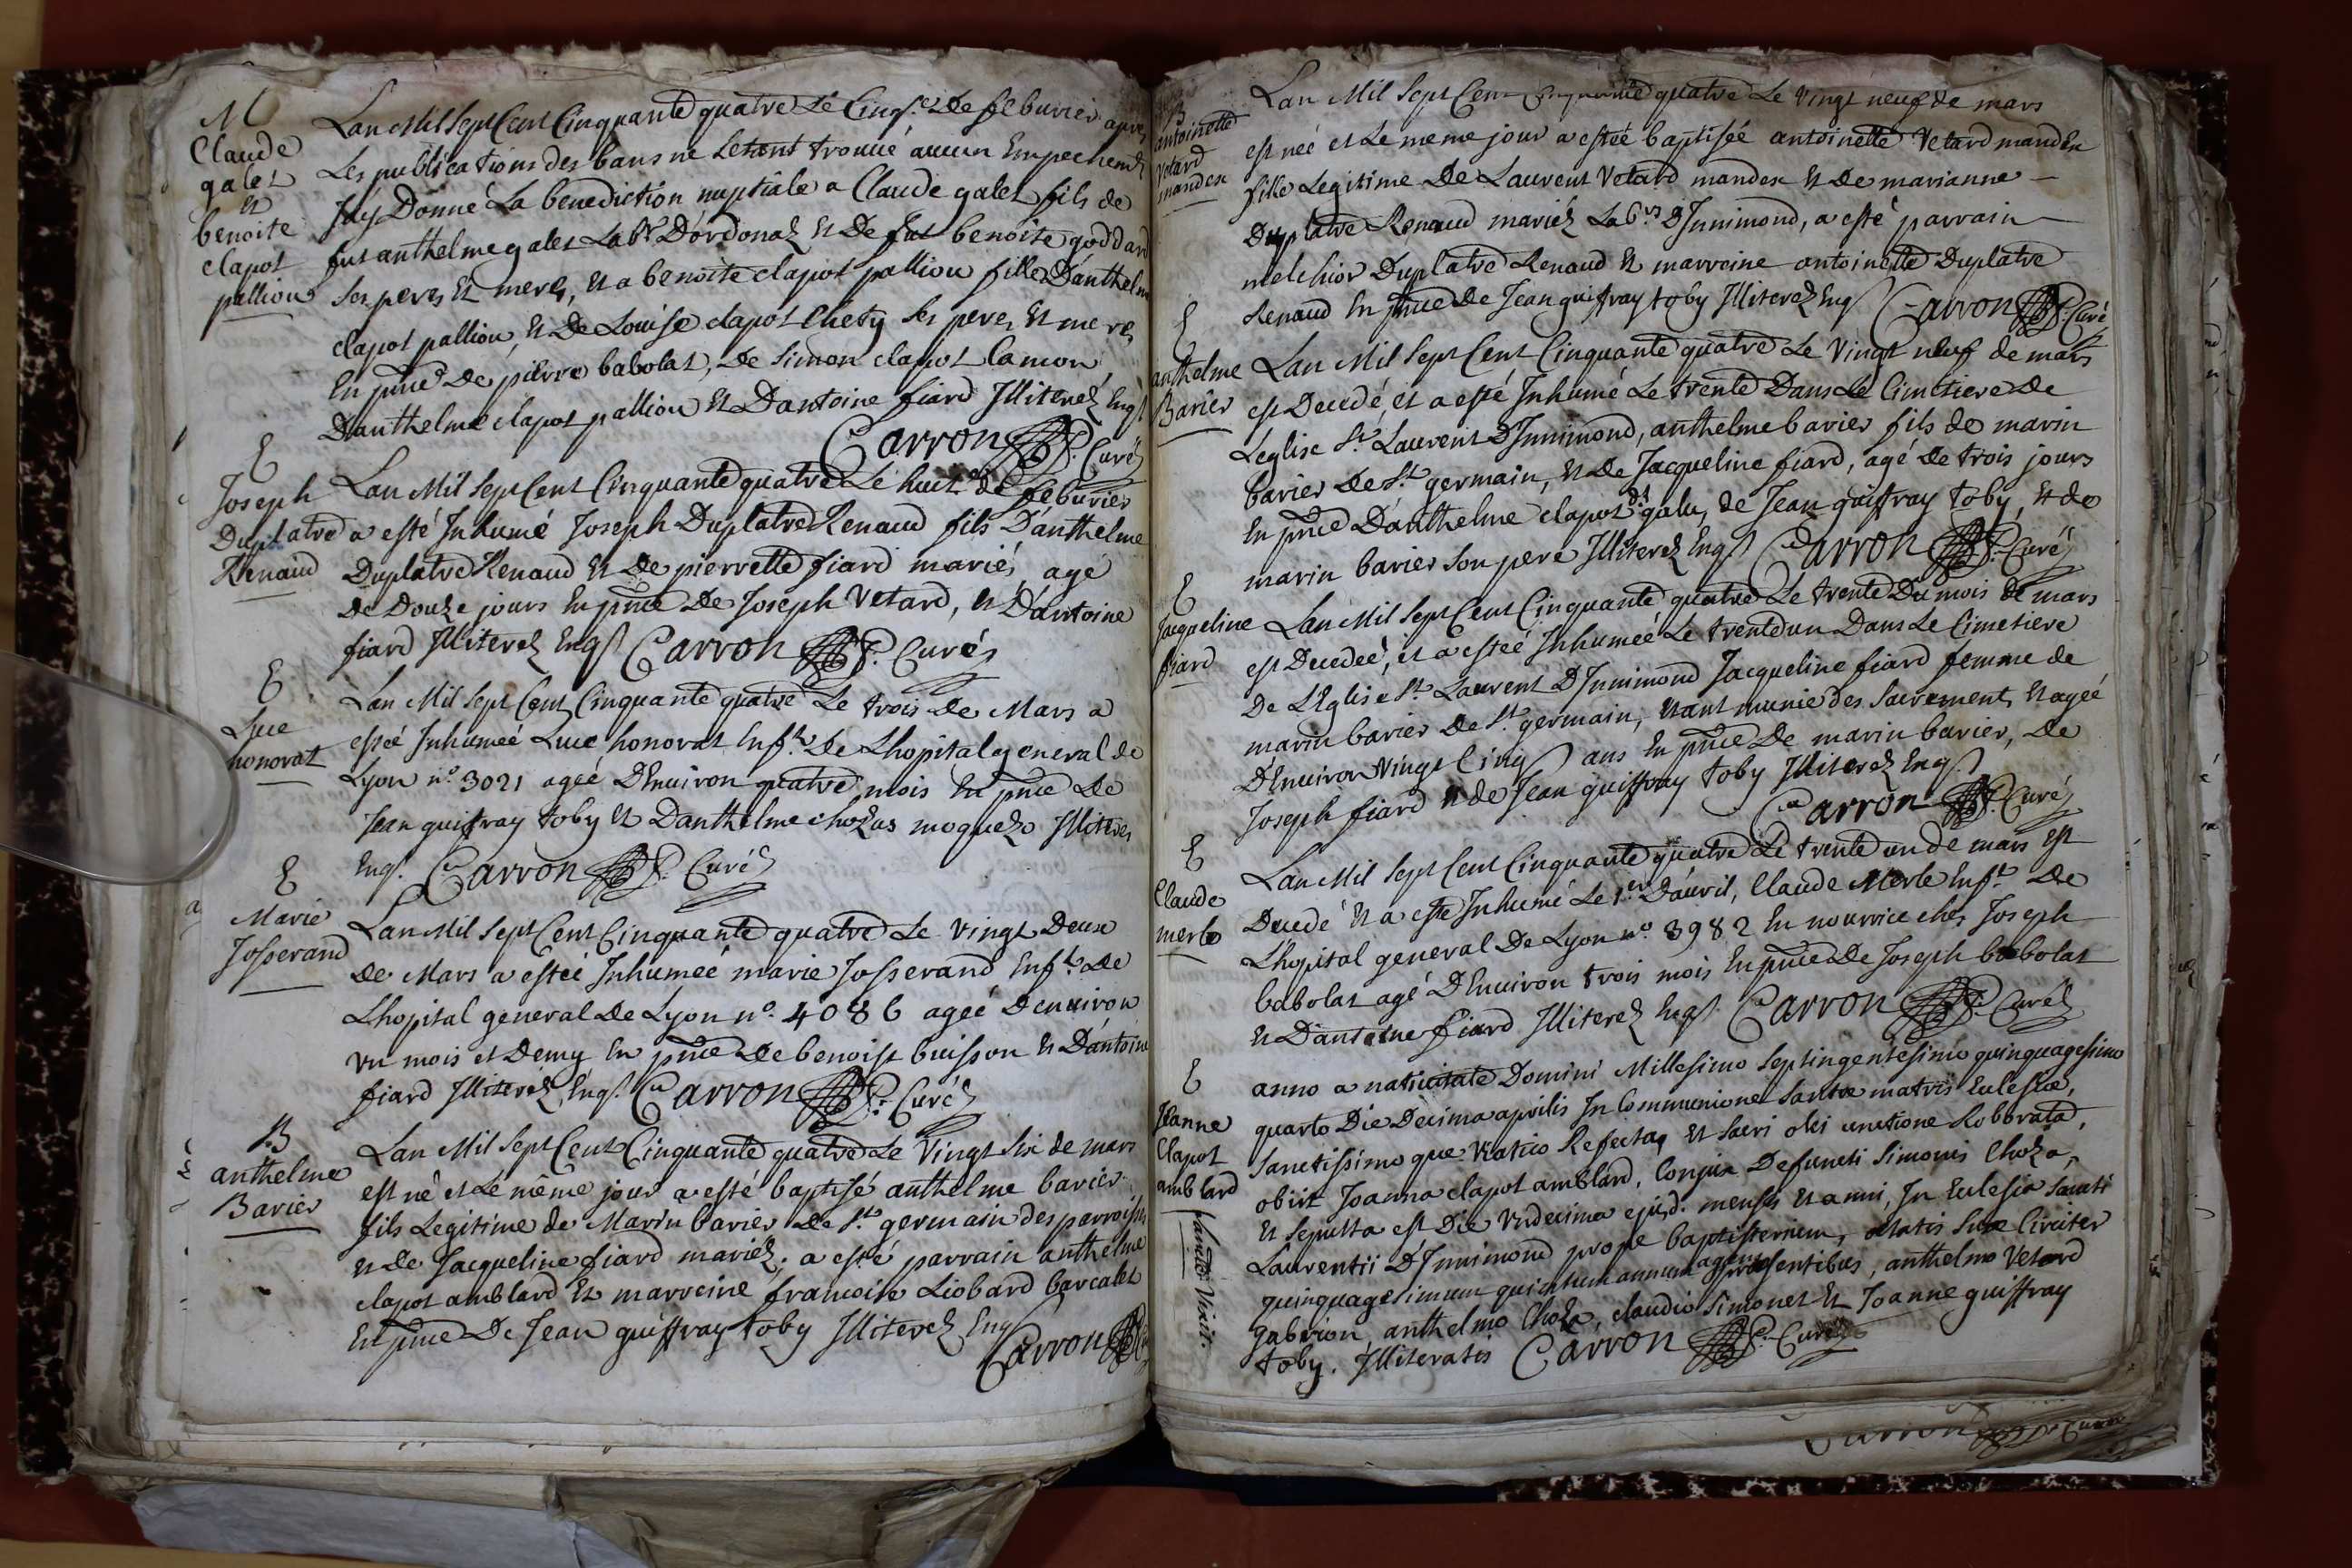 M
Claude
galet
et
benoite
clapot
pallion
Lan Mil Sept Cent Cinquante quatre Le Cinq.e De feburier apres
Les publications des bans ne Letant trouué aucun Empechem.t
J'ay Donné La benediction nuptiale a Claude galet fils de
fut anthelme galet Lab.r D'ordonaz Et De fut benoite goddard
Ses peres Et meres, Et a benoite clapot pallion fille D'anthelm
clapot pallion, Et De Louise clapot Chety Ses peres Et meres
En pnce De pierre babolat, De Simon clapot Camon,
D'anthelme clapot pallion Et D'antoine fiard Illiterez Enq.s
Carron P. Curé
E
Joseph
Duplatre
Renaud
Lan Mil Sept Cent Cinquante quatre Le huit de feburier
a esté Inhumé Joseph Duplatre Renaud fils D'anthelme
Duplatre Renaud Et De pierrette fiard mariés agé
De Douze jours En pnce De Joseph Vetard, Et D'antoine
fiard Illiterez Enq.s Carron P. Curé
E
Luce
honorat
Lan Mil Sept Cent Cinquante quatre Le trois De Mars a
estéé Inhumeé Luce honorat Enf.t De Lhopital general de
Lyon n.o 3021 ageé D'Enuiron quatre mois En pnce De
Jean guiffray toby Et Danthelme chozas moquezo Illiteres
Enq.s Carron P. Curé
E
Marie
Josserand
Lan Mil Sept Cent Cinquante quatre Le Vingt Deux
De Mars a estéé Inhumeé marie Josserand Enf.t De
Lhopital general De Lyon n.o 4086 ageé Denuiron
vn mois et Demy En pnce De benoist buisson Et D'antoine
fiard Illiterez Enq.s Carron P. Curé
B
anthelme
Barier
Lan Mil Sept Cent Cinquante quatre Le Vingt Six de mars
est né et Le même jour a esté baptisé anthelme barier
fils Legitime de Marin barier De S.t germain des parroisses
et De Jacqueline fiard mariéz, a esté parrain anthelme
clapot amblard Et marreine francoise Liobard barcalet
En pnce De Jean guiffray toby Illiterez Enq.s
Carron
antoinette
Vetard
mandex
Lan Mil Sept Cent Cinquante quatre Le Vingt neuf de mars
est neé et Le meme jour a estéé baptiseé antoinette Vetard mandex
fille Legitime De Laurent Vetard mandex Et De marianne
Duplatre Renaud mariéz Lab.rs D'Innimond, a esté parrain
melchior Duplatre Renaud Et marreine antoinette Duplatre
Renaud En pnce De Jean guiffray toby Illiterez Enq.s Carron P. Curé
E
anthelme
Barier
Lan Mil Sept Cent Cinquante quatre Le Vingt neuf de mars
est Decedé, et a esté Inhumé Le trente Dans Le Cimetiere De
Leglise S.t Laurent D'Innimond, anthelme barier fils de marin
barier De S.t germain, Et De Jacqueline fiard, agé de trois jours
En pnce D'anthelme clapot d.t galu, de Jean guiffray toby, Et de
marin barier Son pere Illiterez Enq.s Carron P. Curé
E
Jacqueline
fiard
Lan Mil Sept Cent Cinquante quatre Le trente Du mois de mars
est Decedeé, et a estéé Inhumeé Le trente un Dans Le Cimetiere
De L'Eglise S.t Laurent D'Innimond Jacqueline fiard femme de
marin barier De S.t germain, Etant munie des Sacrements Et ageé
D'Enuiron Vingt Cinq ans En pnce De marin barier, De
Joseph fiard Et de Jean guiffray toby Illiterez Enq.s
Carron P. Curé
E
Claude
merle
Lan Mil Sept Cent Cinquante quatre Le trente un de mars est
Decedé Et a esté Inhumé Le 1.er D'auril, Claude Merle Enf.t De
Lhopital general De Lyon n.o 3982 En nourrice chés Joseph
babolat agé D'Enuiron trois mois En pnce De Joseph babolat
Et D'antoine fiard Illiterez Enq.s Carron P. Curé
E
Jeanne
Clapot
amblard
Sancte Vixit.
anno a natiuitate Domini Millesimo Septingentesimo quinquagesimo
quarto Die Decima aprilis In Communione Sanctæ matris Ecclesiæ,
Sanctissimoque Viatico Refecta, Et Sacri olei unctione Roborata,
obiit Joanna clapot amblard, Conjux Defuncti Simonis Choza,
Et Sepulta est Die Vndecima ejusd. mensis Et anni, In Ecclesia Sancti
Laurentii D'Innimond prope baptisterium, ætatis Suæ Circiter
quinquagesimum quintum annum agens præsentibus, anthelmo Vetard
gabrion, anthelmo Choza, claudio Simonet Et Joanne guiffray
toby. Illiteratis Carron P. Curé
Carron